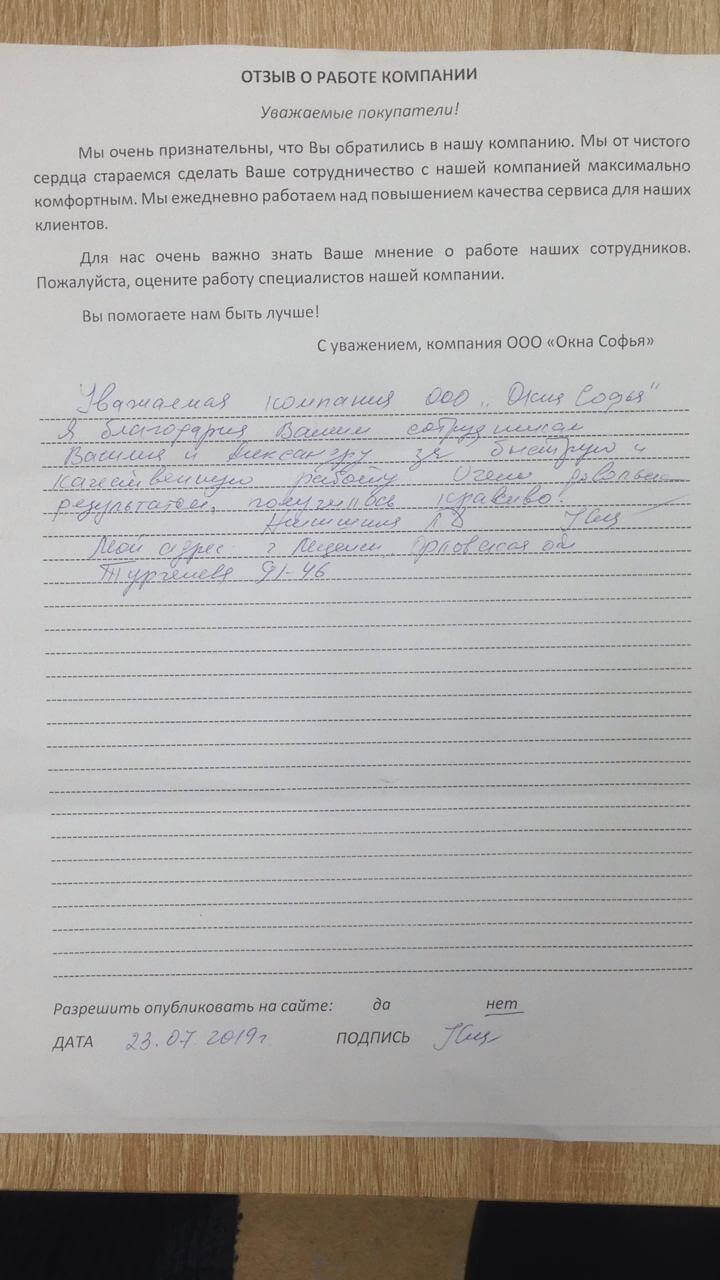 ОТЗЫВ О РАБОТЕ КОМПАНИИ
Уважаемые покупатели!
Мы очень признательны, что Вы обратились в нашу компанию. Мы от чистого
сердца стараемся сделать Ваше сотрудничество с нашей компанией максимально
комфортным. Мы ежедневно работаем над повышением качества сервиса для наших
клиентов.
Для нас очень важно знать Ваше мнение о работе наших сотрудников.
Пожалуйста, оцените работу специалистов нашей компании.
Вы помогаете нам быть лучше!
С уважением, компания ООО «Окна Софья»
Уважаемая компания ООО „Окна Софья"
Я благодарна Вашим сотрудникам
и Александру за быструю и
качественную работу. Очень
результатом, получилось красиво!
Мой адрес г Мценск, Орловская об
Тургенева 91-46
Разрешить опубликовать на сайте: да нет
ДАТА 23.07 2019г ПОДПИСЬ